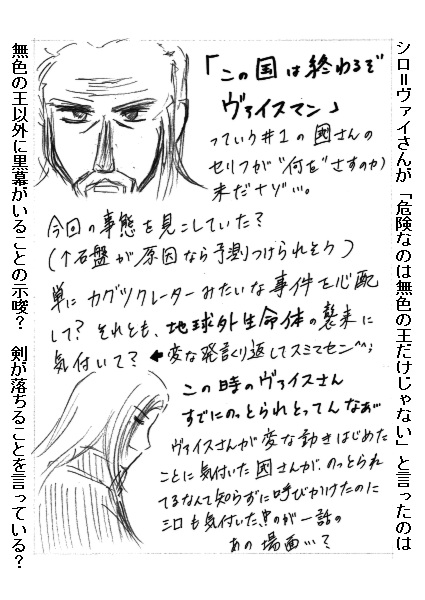 シロ=ヴァイさんが「危険なのは無色の王だけじゃない」と言ったのは
「この国は終わるぞ
ヴァイスマン」
っていう#1の國さんの
セリフが“何を”さすのか
未だナゾ…。
今回の事態を見こしていた？
(↑石盤が原因なら予測つけられそう)
単にカグツクレーターみたいな事件を心配
して？それとも、地球外生命体の襲来に
気付いて？←変な発言くり返してスミマセン^^;
この時のヴァイスさん
すでにのっとられとってんなぁ
ヴァイスさんが変な動きはじめた
ことに気付いた國さんが、のっとられ
てるなんて知らずに呼びかけたのに
シロも気付いた、のが一話の
あの場面…？
無色の王以外に黒幕がいることの示唆？　剣が落ちることを言っている？